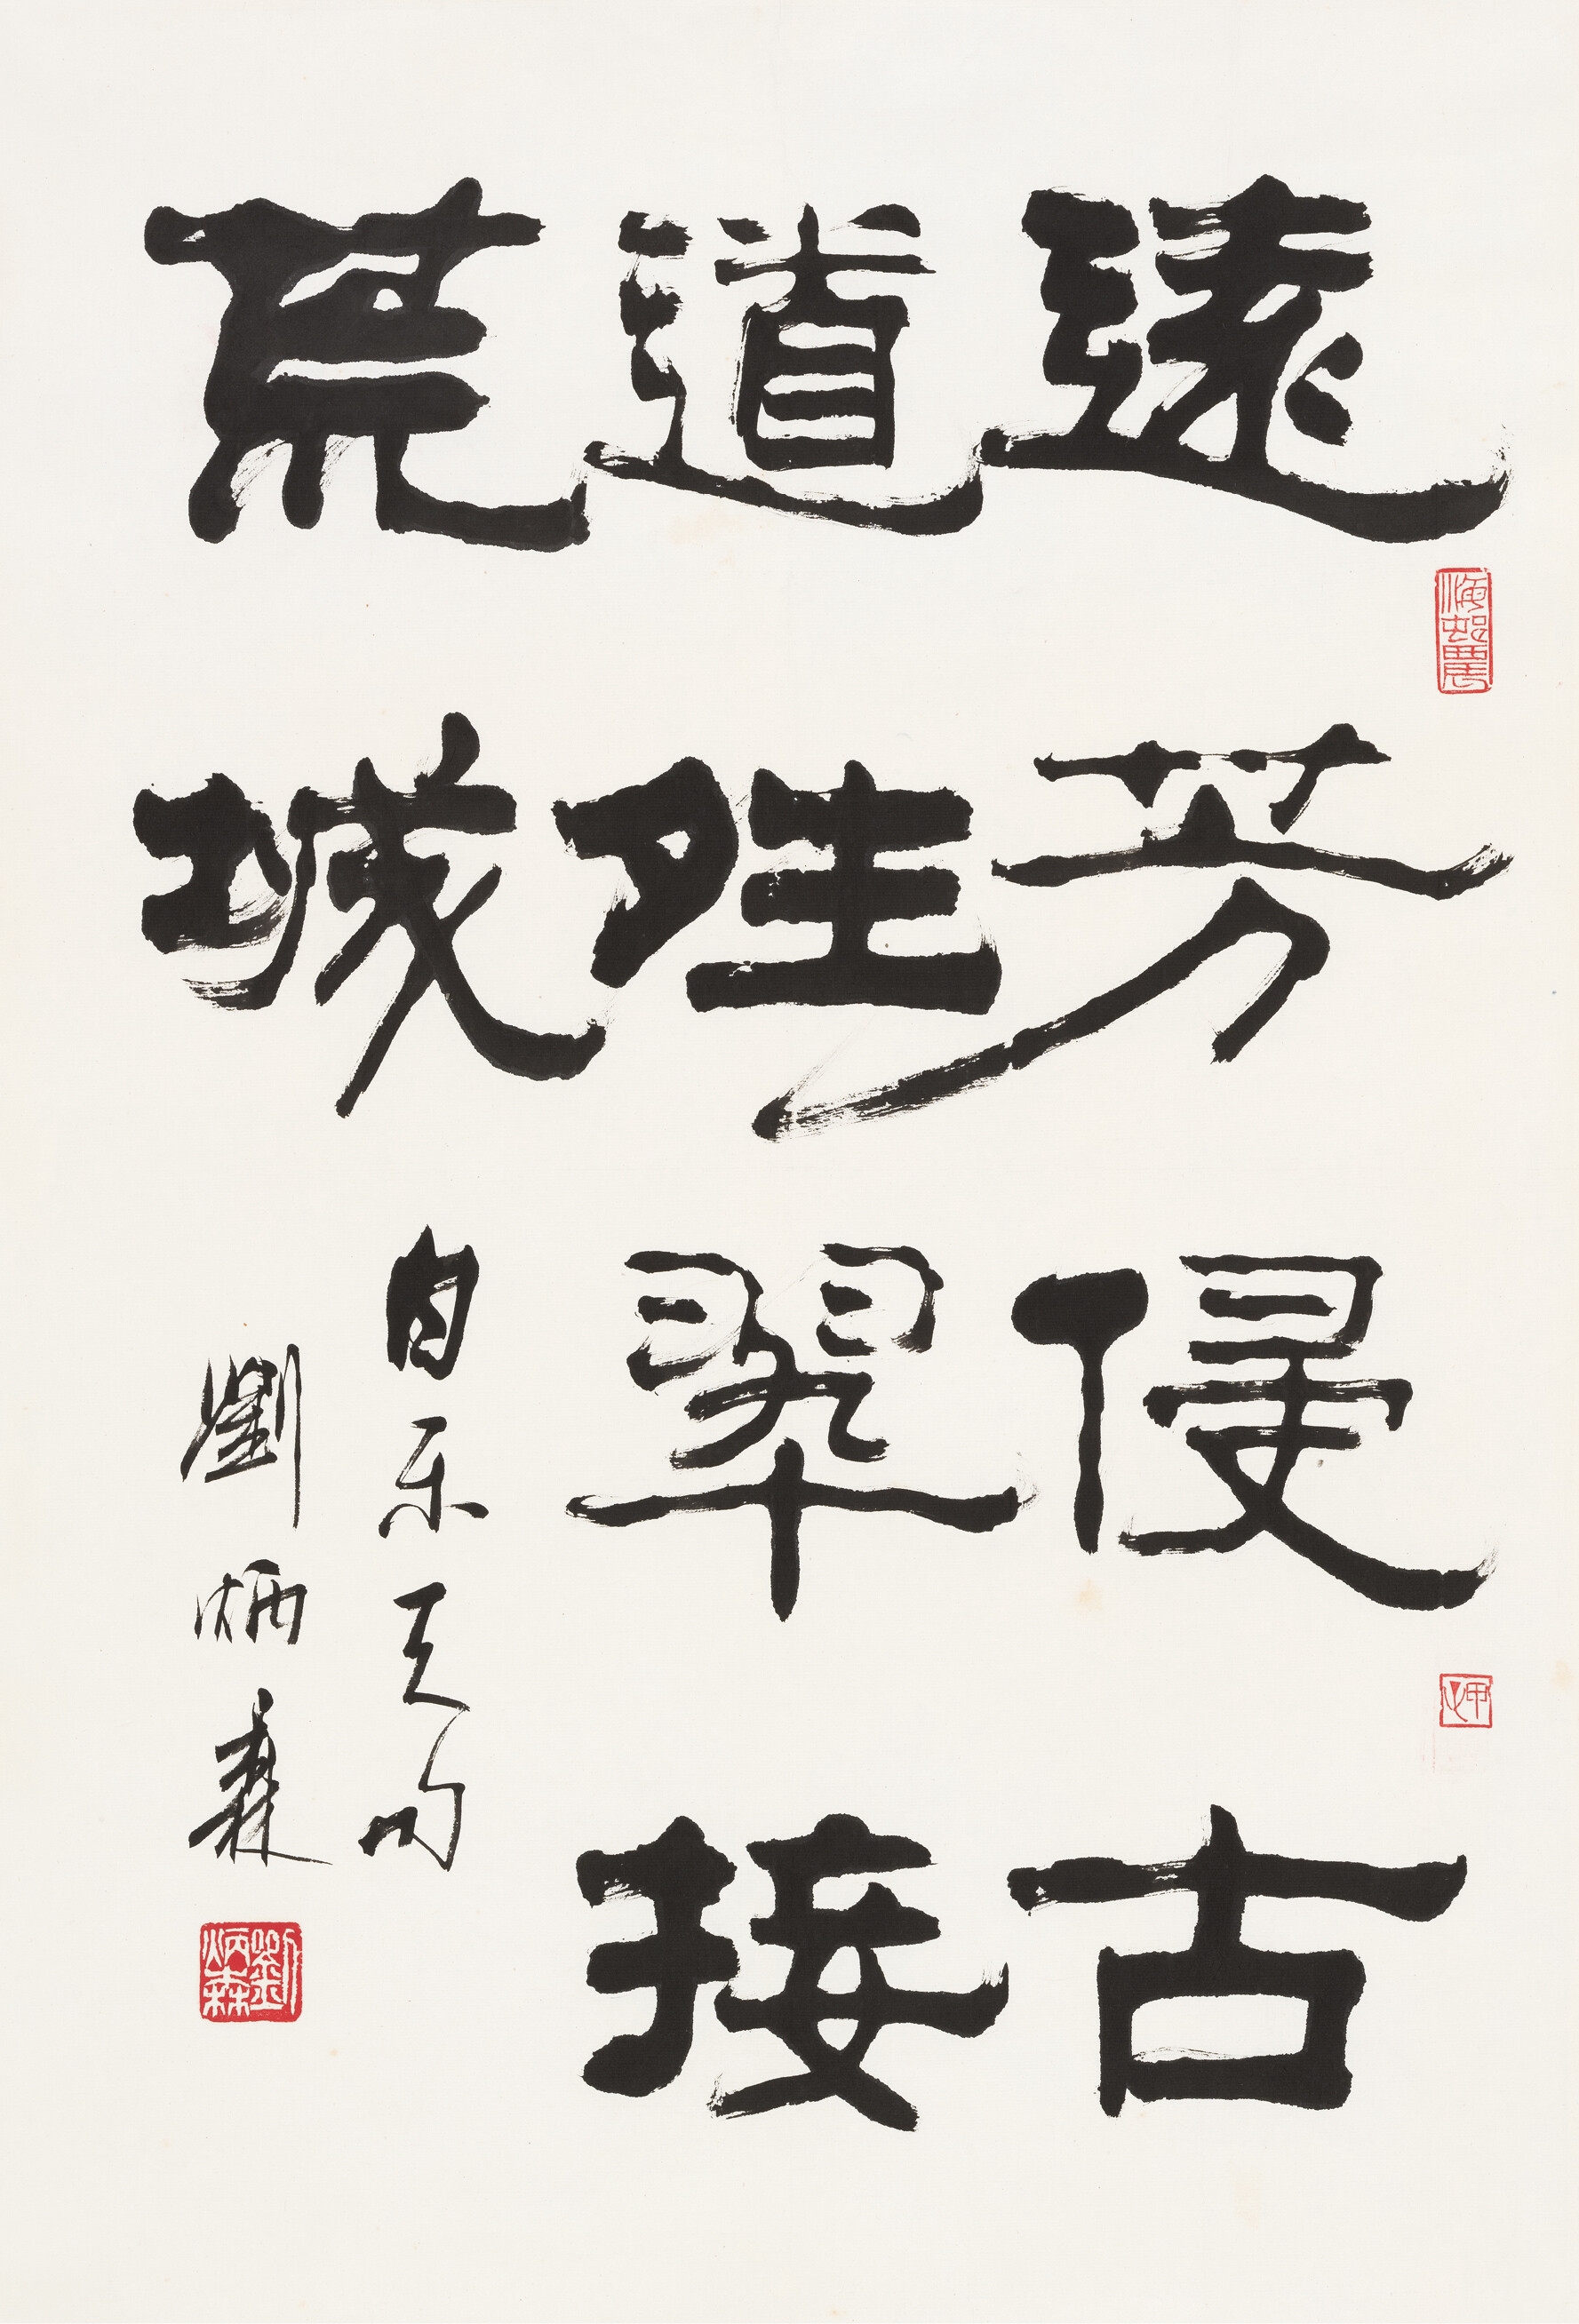 遠芳侵古
道夝翠接
荒城
白乐天句
劉炳森
劉炳森